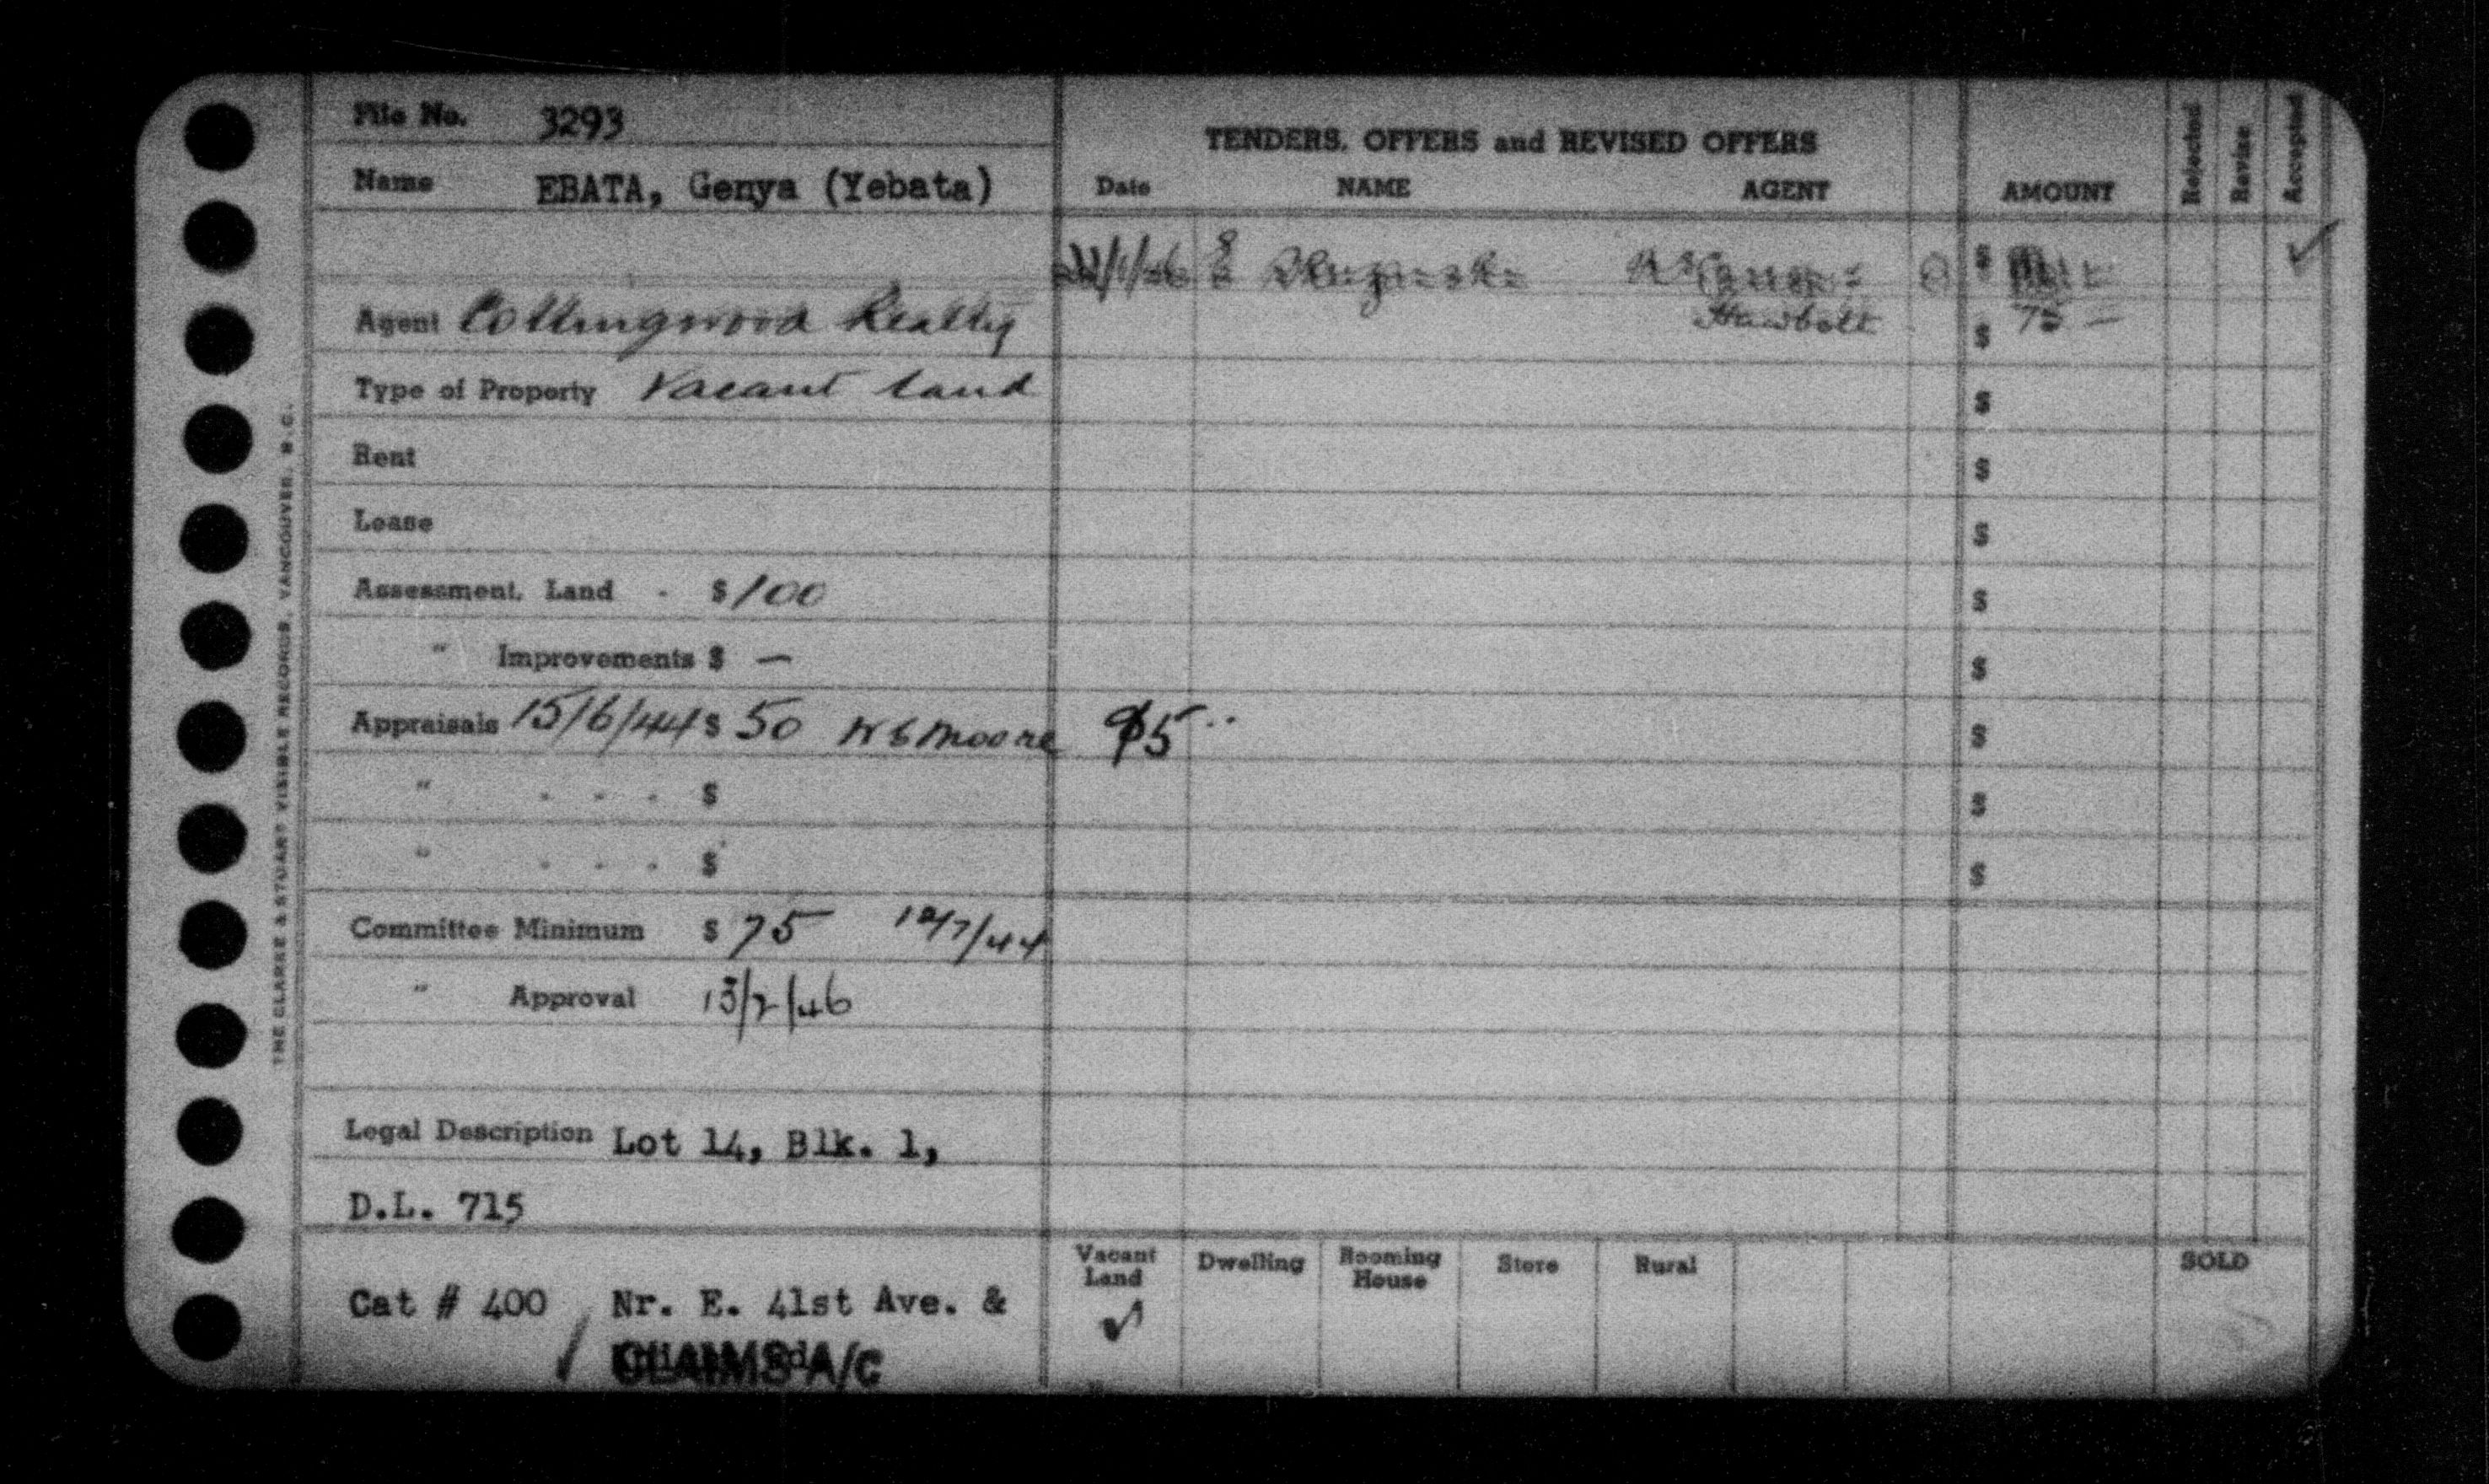 File No. 3293
Name EBATA, Genya (Yebata)
Agent Collingwood Realty
Type of Property Vacant land
Rent
Lease
Assessment, Land - $ 100
" Improvements $ —
Appraisals 15/6/44 $ 50 W E Moore $5
" - - - $
" - - - $
Committee Minimum $ 75 12/7/44
" Approval 13/2/46
Legal Description Lot 14, Blk. 1,
D.L. 715
Cat # 400 Nr. E. 41st Ave. &
CLAIMS A/C
THE CLARKE & STUART VISIBLE RECORDS, VANCOUVER, B.C.
TENDERS, OFFERS and REVISED OFFERS
Date NAME AGENT AMOUNT Rejected Revise Accepted
$ ✓
Hawbolt $ 75 —
$
$
$
$
$
$
$
$
Vacant Land Dwelling Rooming House Store Rural SOLD
✓